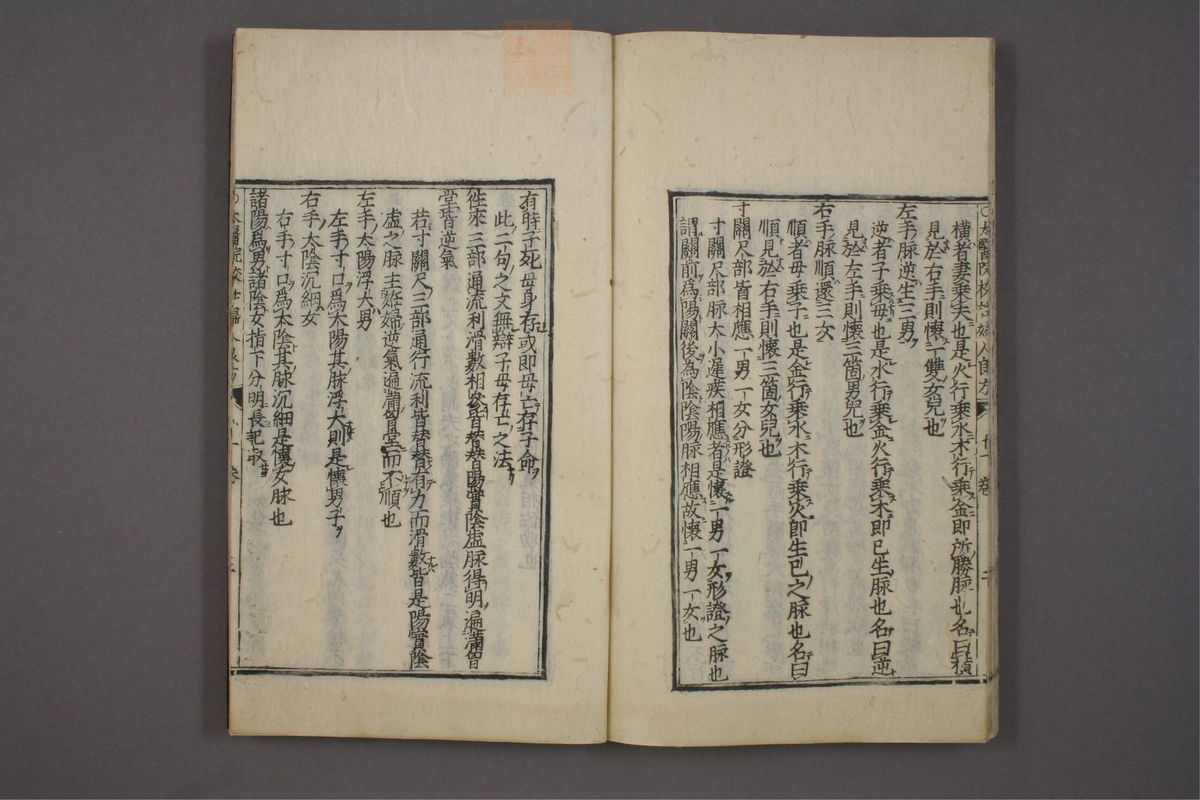 ○太醫院校註婦人良方 廿一卷 二
橫者妻乗夫也是火行乗水木行乗金即所勝脉也名曰橫
見於右手則懷一雙女兒也
左手脉逆生三男
逆者子乗母也是水行乗金火行乗木即已生脉也名曰逆
見於左手則懷三箇男兒也
右手脉順還三女
順者母乗子也是金行乗水木行乗火即生已之脉也名曰
順見於右手則懷三箇女兒也
寸關尺部皆相應一男一女分形證
寸關尺部脉大小遲疾相應者是懷一男一女形證之脉也
謂關前為陽關後為陰陰陽脉相應故懷一男一女也
有時子死母身存或即母亡存子命
此二句之文無辯子母存亡之法
徃來三部通流利滑數相參皆替替陽實陰虛脉得明遍滿胷
堂皆逆氣
若寸關尺三部通行流利皆替替有力而滑數皆是陽實陰
虛之脉主姙婦逆氣遍滿胷堂而不順也
左手太陽浮大男
左手寸口為太陽其脉浮大則是懷男子
右手太陰沉細女
右手寸口為太陰其脉沉細是懷女脉也
諸陽為男諸陰女指下分明長記取